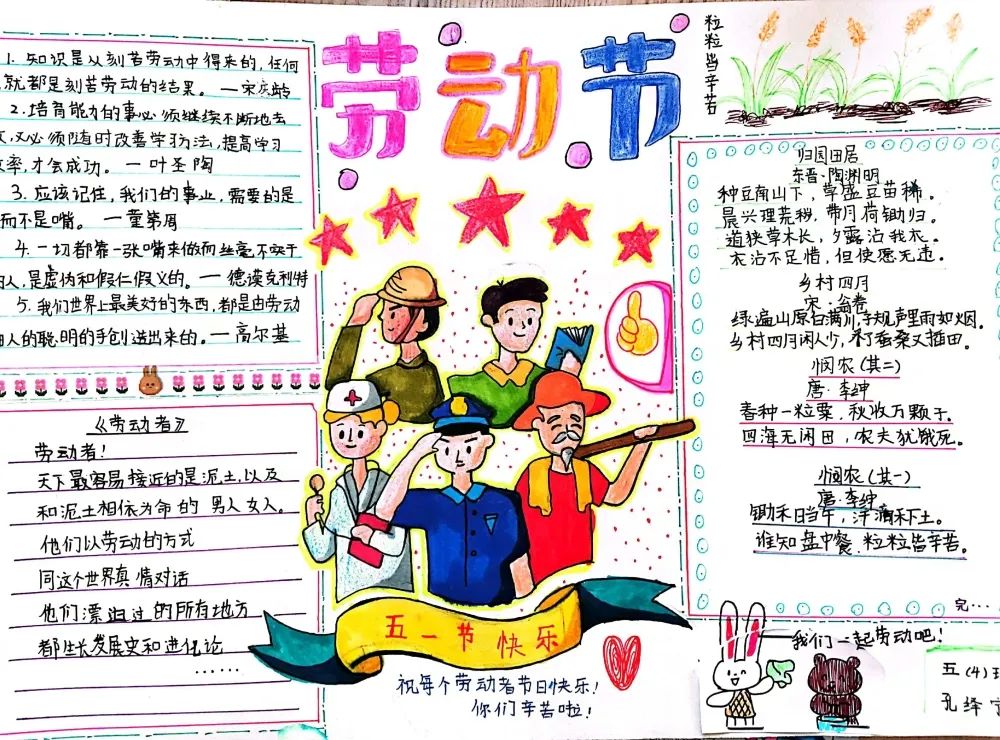 劳动节
粒粒皆辛苦
1. 知识是从刻苦劳动中得来的,任何
就都是刻苦劳动的结果。 — 宋庆龄
2. 培育能力的事必须继续不断地去
,又必须随时改善学习方法,提高学习
率,才会成功。 — 叶圣陶
3. 应该记住,我们的事业,需要的是
而不是嘴。 — 童第周
4. 一切都靠一张嘴来做而丝毫不实干
人,是虚伪和假仁假义的。 — 德谟克利特
5. 我们世界上最美好的东西,都是由劳动
人的聪明的手创造出来的。 — 高尔基
《劳动者》
劳动者!
天下最容易接近的是泥土以及
和泥土相依为命的 男人女人。
他们以劳动的方式
同这个世界真情对话
他们漂泊过的所有地方
都生长发展史和进化论
······
五一节快乐
祝每个劳动者节日快乐!
你们辛苦啦!
归园田居
东晋·陶渊明
种豆南山下,草盛豆苗稀。
晨兴理荒秽,带月荷锄归。
道狭草木长,夕露沾我衣。
衣沾不足惜,但使愿无违。
乡村四月
宋·翁卷
绿遍山原白满川,子规声里雨如烟。
乡村四月闲人少,才蚕桑又插田。
悯农(其二)
唐·李绅
春种一粒粟,秋收万颗子。
四海无闲田,农夫犹饿死。
悯农(其一)
唐·李绅
锄禾日当午,汗滴禾下土。
谁知盘中餐,粒粒皆辛苦。
完···
我们一起劳动吧!
五(4)
孔绎